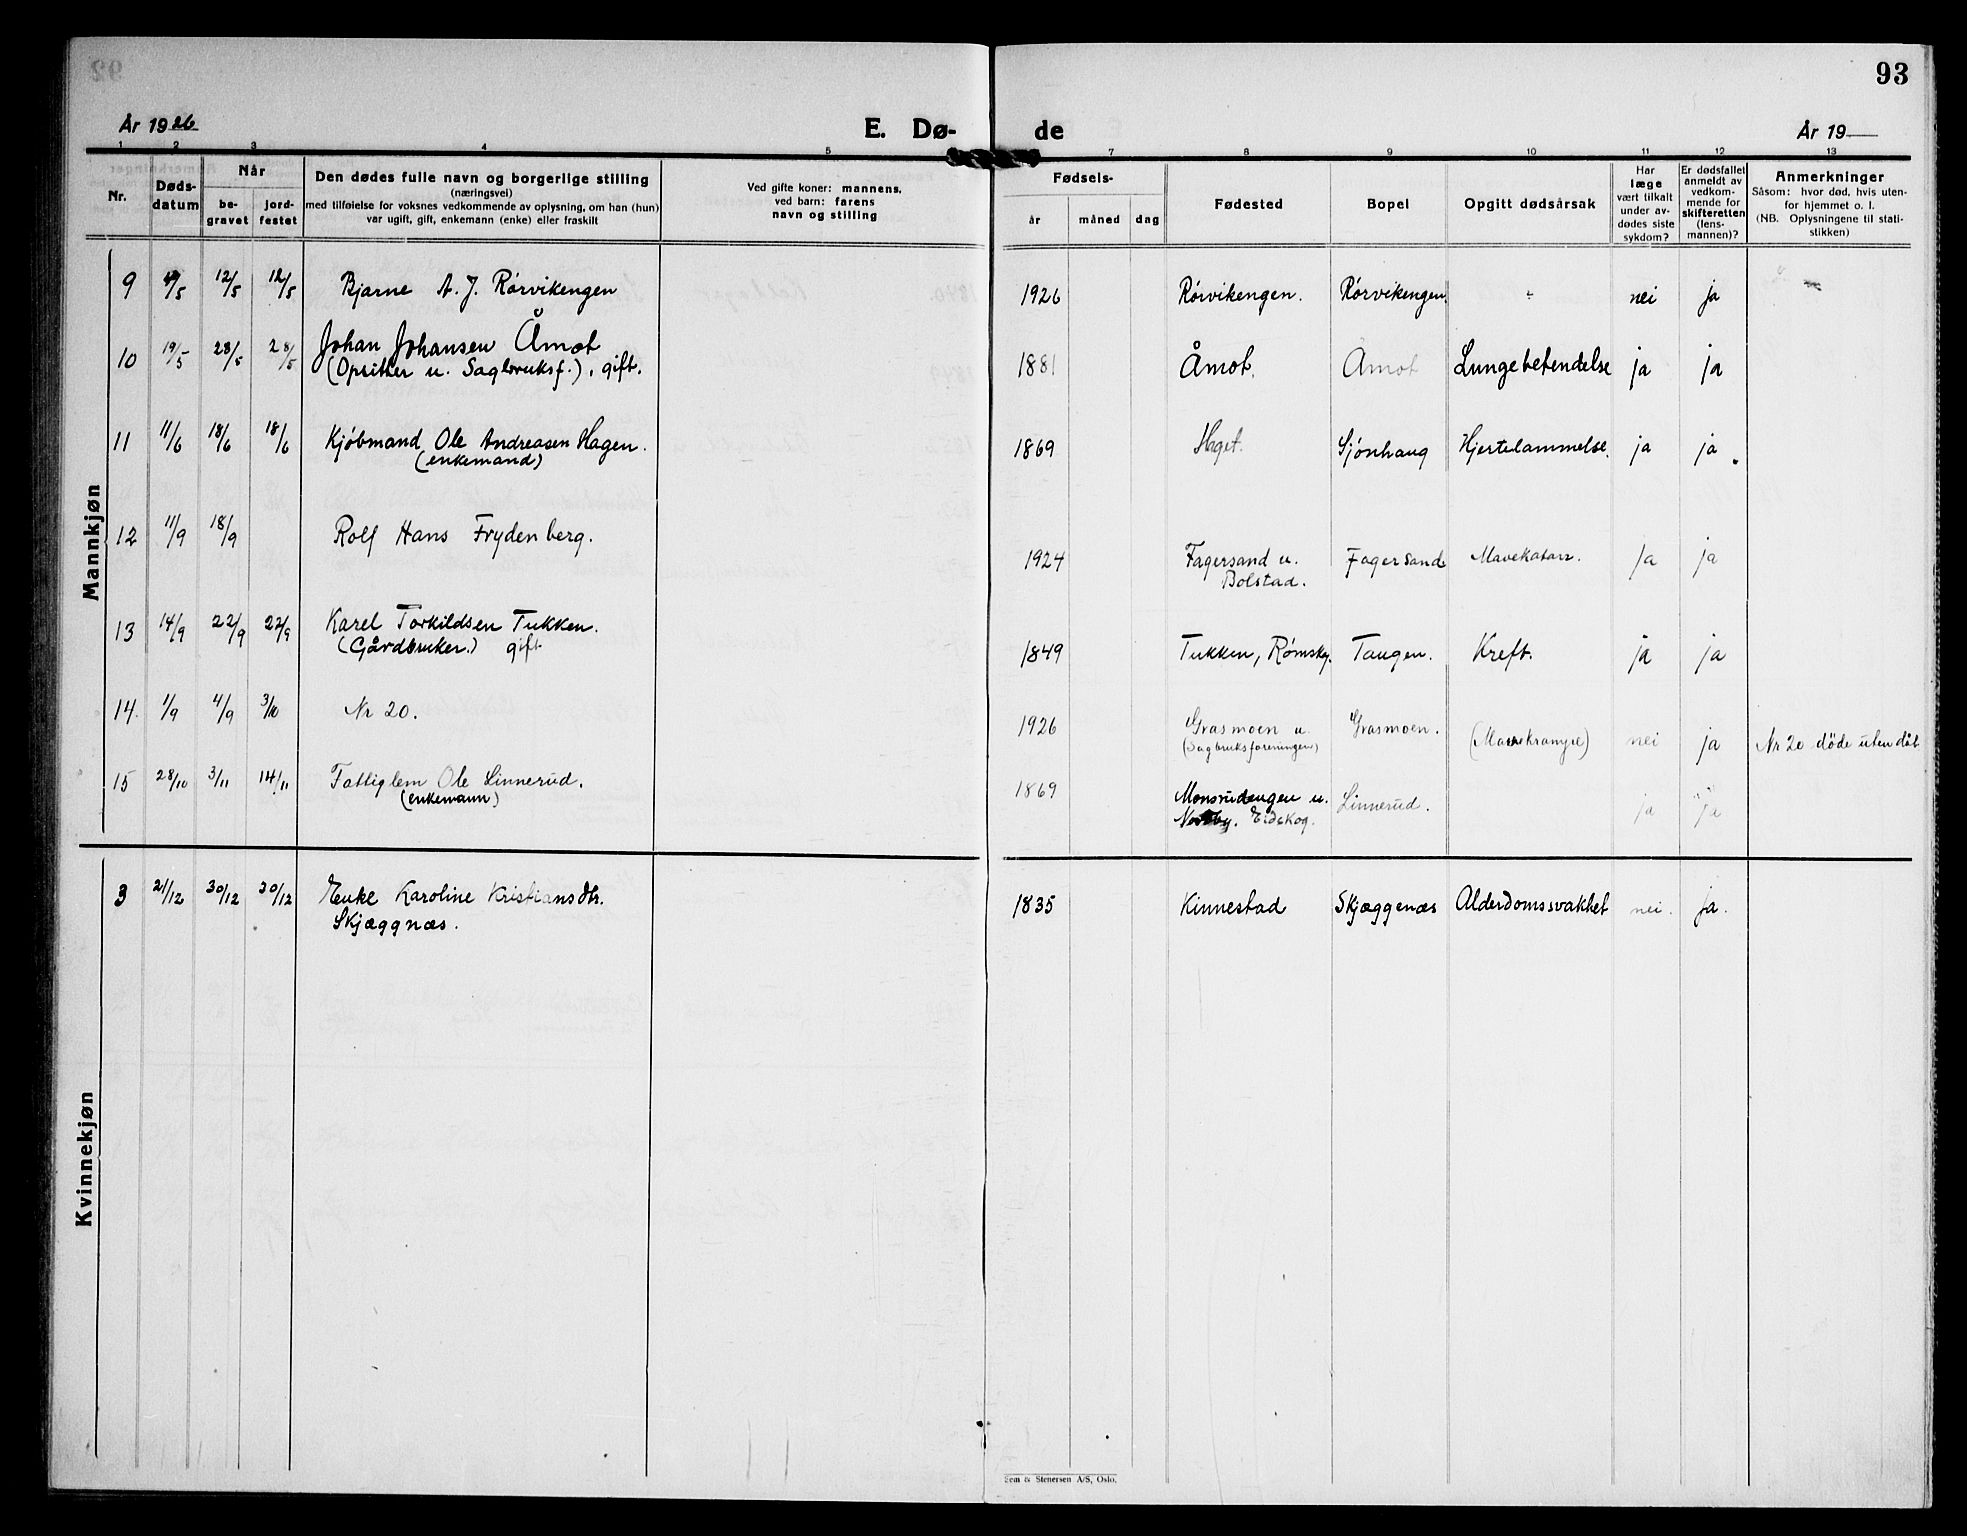 93
År 1926
E. Dø-
de
År 19
1 2 3 4 5 7 8 9 10 11 12 13
Nr.
Døds-
datum
Når
be-
gravet
jord-
festet
Den dødes fulle navn og borgerlige stilling
(næringsvei)
med tilføielse for voksnes vedkommende av oplysning, om han (hun)
var ugift, gift, enkemann (enke) eller fraskilt
Ved gifte koner: mannens,
ved barn: farens
navn og stilling
Fødsels-
år måned dag
Fødested
Bopel
Opgitt dødsårsak
Har
læge
vært tilkalt
under av-
dødes siste
sykdom?
Er dødsfallet
anmeldt av
vedkom-
mende for
skifteretten
(lens-
mannen)?
Anmerkninger
Såsom: hvor død, hvis uten-
for hjemmet o. l.
(NB. Oplysningene til stati-
stikken)
Mannkjøn
9 12/5 12/5 Bjarne A. J. Rørvikengen 1926 Rørvikengen. Rørvikengen. nei ja
10 19/5 28/5 28/5 Johan Johansen Åmot 1881 Åmot. Åmot Lungebetendelse ja ja
(Opsitter u. Sagbruksf.), gift.
11 11/6 18/6 18/6 Kjøbmand Ole Andreasen Hagen. 1869 Sjønhaug Hjertelammelse. ja ja
(enkemand)
12 11/9 18/9 Rolf Hans Frydenberg. 1924 Fagersand u. Fagersand Mavekatarr. ja ja
Bolstad.
13 14/9 22/9 22/9 Karel Torkildsen Tukken. 1849 Tukken, Rømskg. Tangen. Kreft. ja ja
(Gårdbruker.) gift
14. 1/9 4/9 3/10 Nr 20. 1926 Grasmoen u. Grasmoen. (Mavekrampe) nei ja Nr 20 døde uten dåb
(Sagbruksforeningen)
15 28/10 3/11 14/11 Fattiglem Ole Linnerud. 1869 Monsrudengen u. Linnerud. ja ja
(enkemann) Eidskog.
Kvinnekjøn
3 21/12 30/12 30/12 Enke Karoline Kristiansdtr. 1835 Kinnestad Skjæggenæs Alderdomssvakhet nei. ja.
Skjæggnæs.
Sem & Stenersen A/S, Oslo.